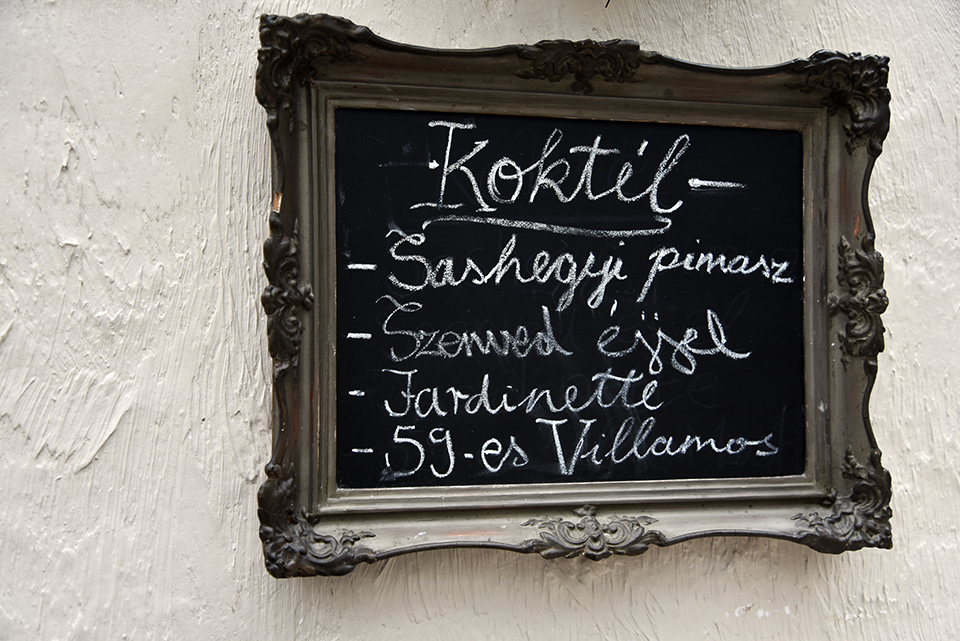 Koktél -
- Sashegyi pimasz
- Szenved éjjel
- Jardinette
- 59-es Villamos